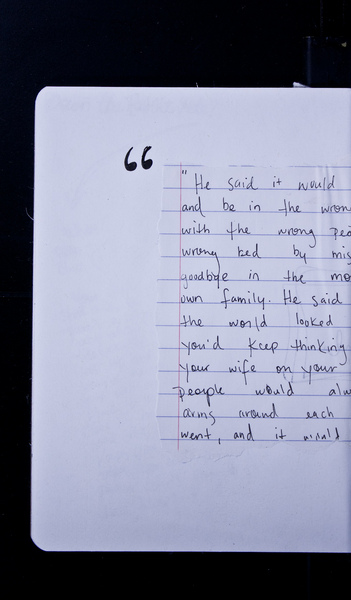 “
" He said it would
and be in the wron
with the wrong peo
wrong bed by mis
goodbye in the mo
own family. He said
the world looked
you'd keep thinking
your wife on your
people would alw
arms around each
went, and it would